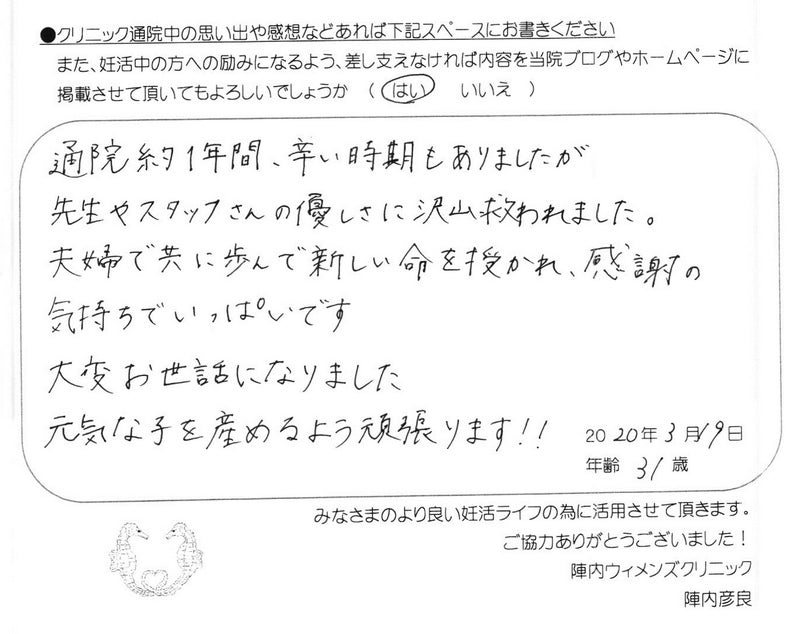 ●クリニック通院中の思い出や感想などあれば下記スペースにお書きください
また、妊活中の方への励みになるよう、差し支えなければ内容を当院ブログやホームページに
掲載させて頂いてもよろしいでしょうか （ はい　いいえ ）
通院約1年間、辛い時期もありましたが
先生やスタッフさんの優しさに沢山救われました。
夫婦で共に歩んで新しい命を授かれ、感謝の
気持ちでいっぱいです
大変お世話になりました
元気な子を産めるよう頑張ります!!
2020年3月19日
年齢 31歳
みなさまのより良い妊活ライフの為に活用させて頂きます。
ご協力ありがとうございました！
陣内ウィメンズクリニック
陣内彦良